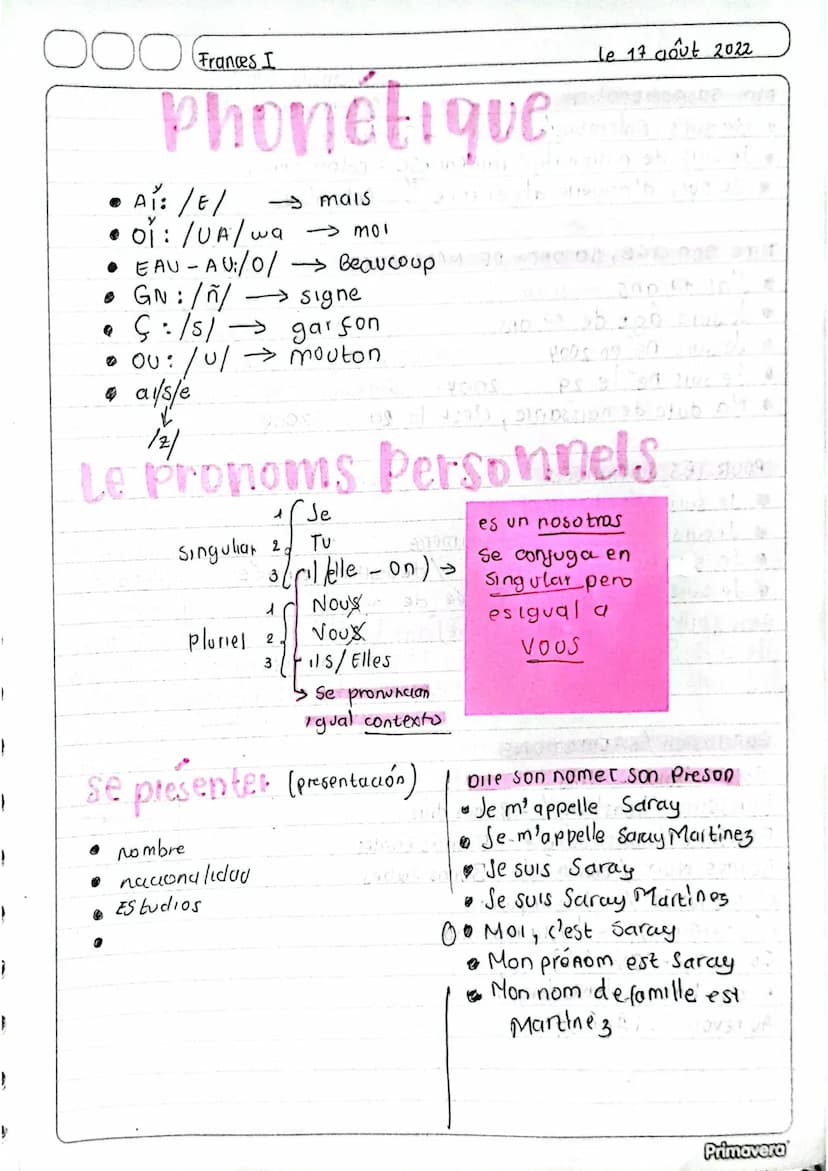 Frances I
le 17 août 2022
Phonétique
• Aǐ: /E/ → mais
• oǐ: /UA/ wa → moi
• EAU - AU: /O/ → Beaucoup
• GN: /ñ/ → signe
• Ç: /s/ → garçon
• OU: /U/ → mouton
• a/s/e
↓
/z/
Le pronoms Personnels
Singulier
1 Je
2 Tu
3 (il/elle - on) →
Pluriel
1 Nous
2 Vous
3 ils/Elles
→ Se pronuncian
igual contexto
es un nosotros
se conjuga en
singular pero
es igual a
VOOS
se présenter (presentación)
• nombre
• nacionalidad
• Estudios
•
Dire son nomet son Preson
• Je m'appelle Saray
• Je m'appelle Saray Martinez
• Je suis Saray
• Je suis Saray Martinez
O • Moi, c'est Saray
• Mon prénom est Saray
• Mon nom de famille est
Martinez
Primavera